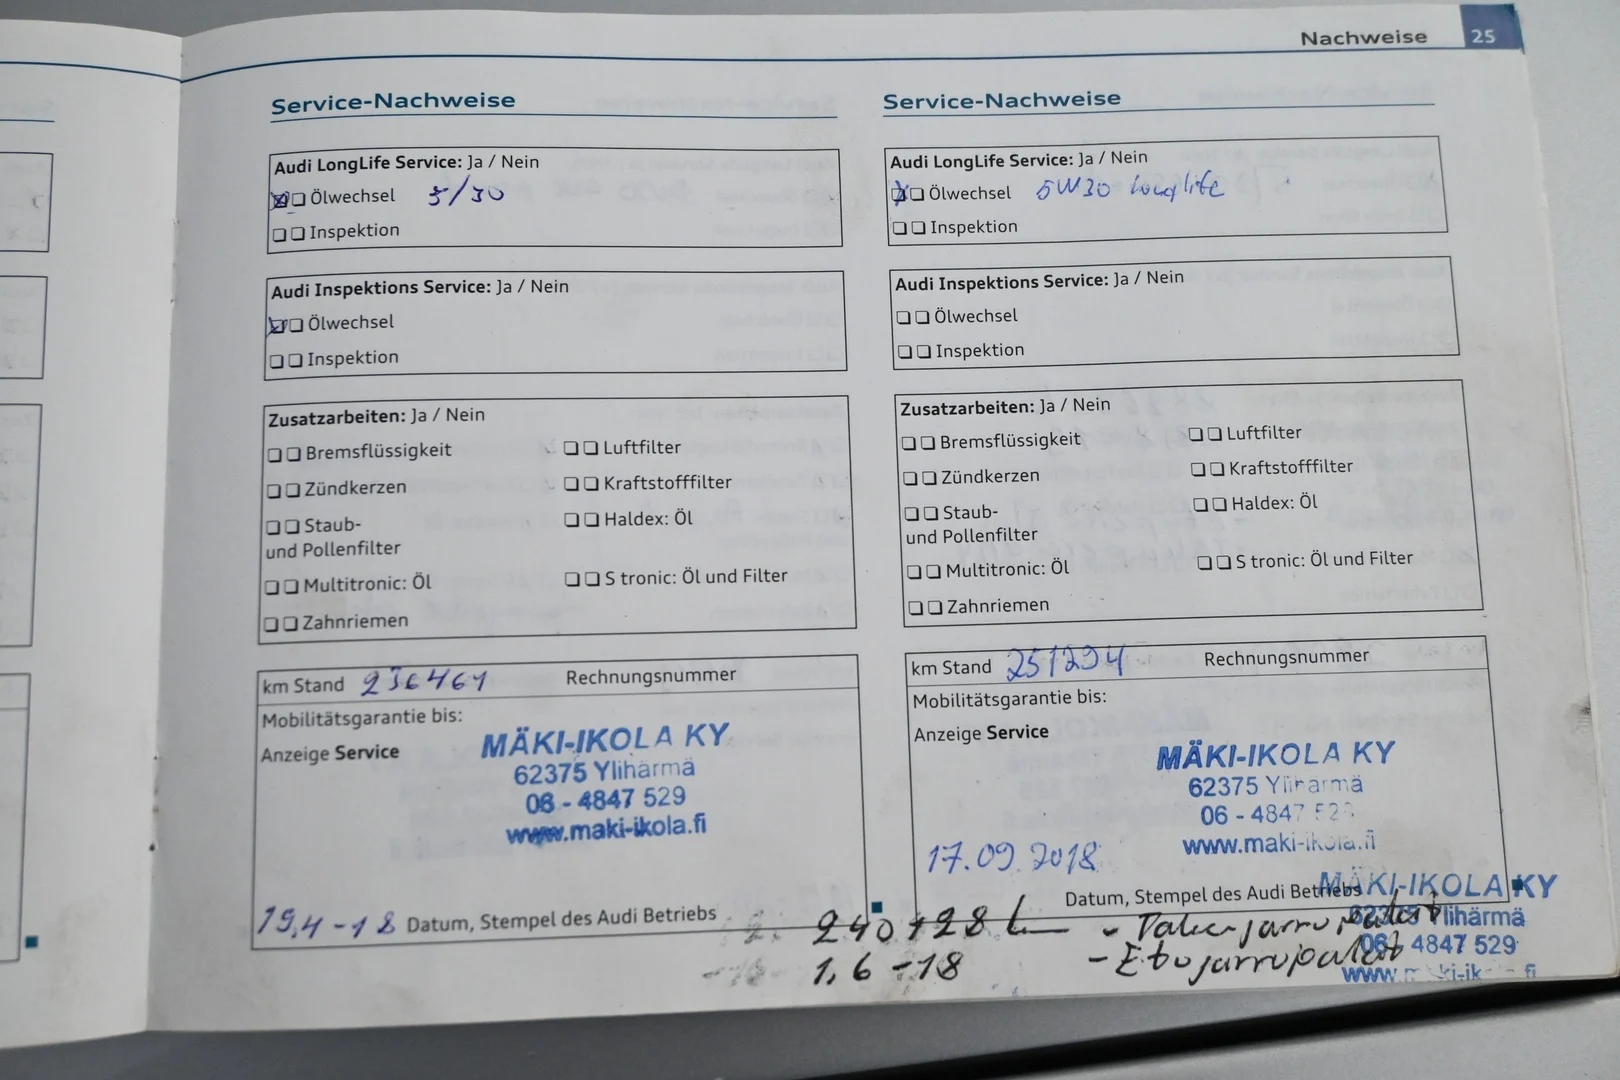 Nachweise 25
Service-Nachweise
Audi LongLife Service: Ja / Nein
Ölwechsel 5/30
Inspektion
Audi Inspektions Service: Ja / Nein
Ölwechsel
Inspektion
Zusatzarbeiten: Ja / Nein
Bremsflüssigkeit
Luftfilter
Zündkerzen
Kraftstofffilter
Staub-
und Pollenfilter
Haldex: Öl
Multitronic: Öl
S tronic: Öl und Filter
Zahnriemen
km Stand 236461 Rechnungsnummer
Mobilitätsgarantie bis:
Anzeige Service
MÄKI-IKOLA KY
62375 Ylihärmä
06 - 4847 529
www.maki-ikola.fi
19,4-18 Datum, Stempel des Audi Betriebs
Service-Nachweise
Audi LongLife Service: Ja / Nein
Ölwechsel 5W30 longlife
Inspektion
Audi Inspektions Service: Ja / Nein
Ölwechsel
Inspektion
Zusatzarbeiten: Ja / Nein
Bremsflüssigkeit
Luftfilter
Zündkerzen
Kraftstofffilter
Staub-
und Pollenfilter
Haldex: Öl
Multitronic: Öl
S tronic: Öl und Filter
Zahnriemen
km Stand 251294 Rechnungsnummer
Mobilitätsgarantie bis:
Anzeige Service
MÄKI-IKOLA KY
62375 Ylihärmä
06 - 4847 529
www.maki-ikola.fi
17.09.2018
Datum, Stempel des Audi Betriebs
MÄKI-IKOLA KY
62375 Ylihärmä
06 - 4847 529
www.maki-ikola.fi
240128 - Takajarrupalat
1,6-18 - Etujarrupalat